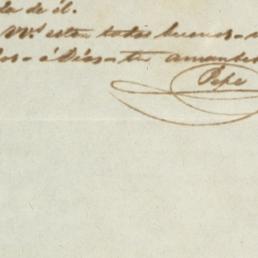 de él.
V.s esten todos buenos
á Dios tu amante
Pepe